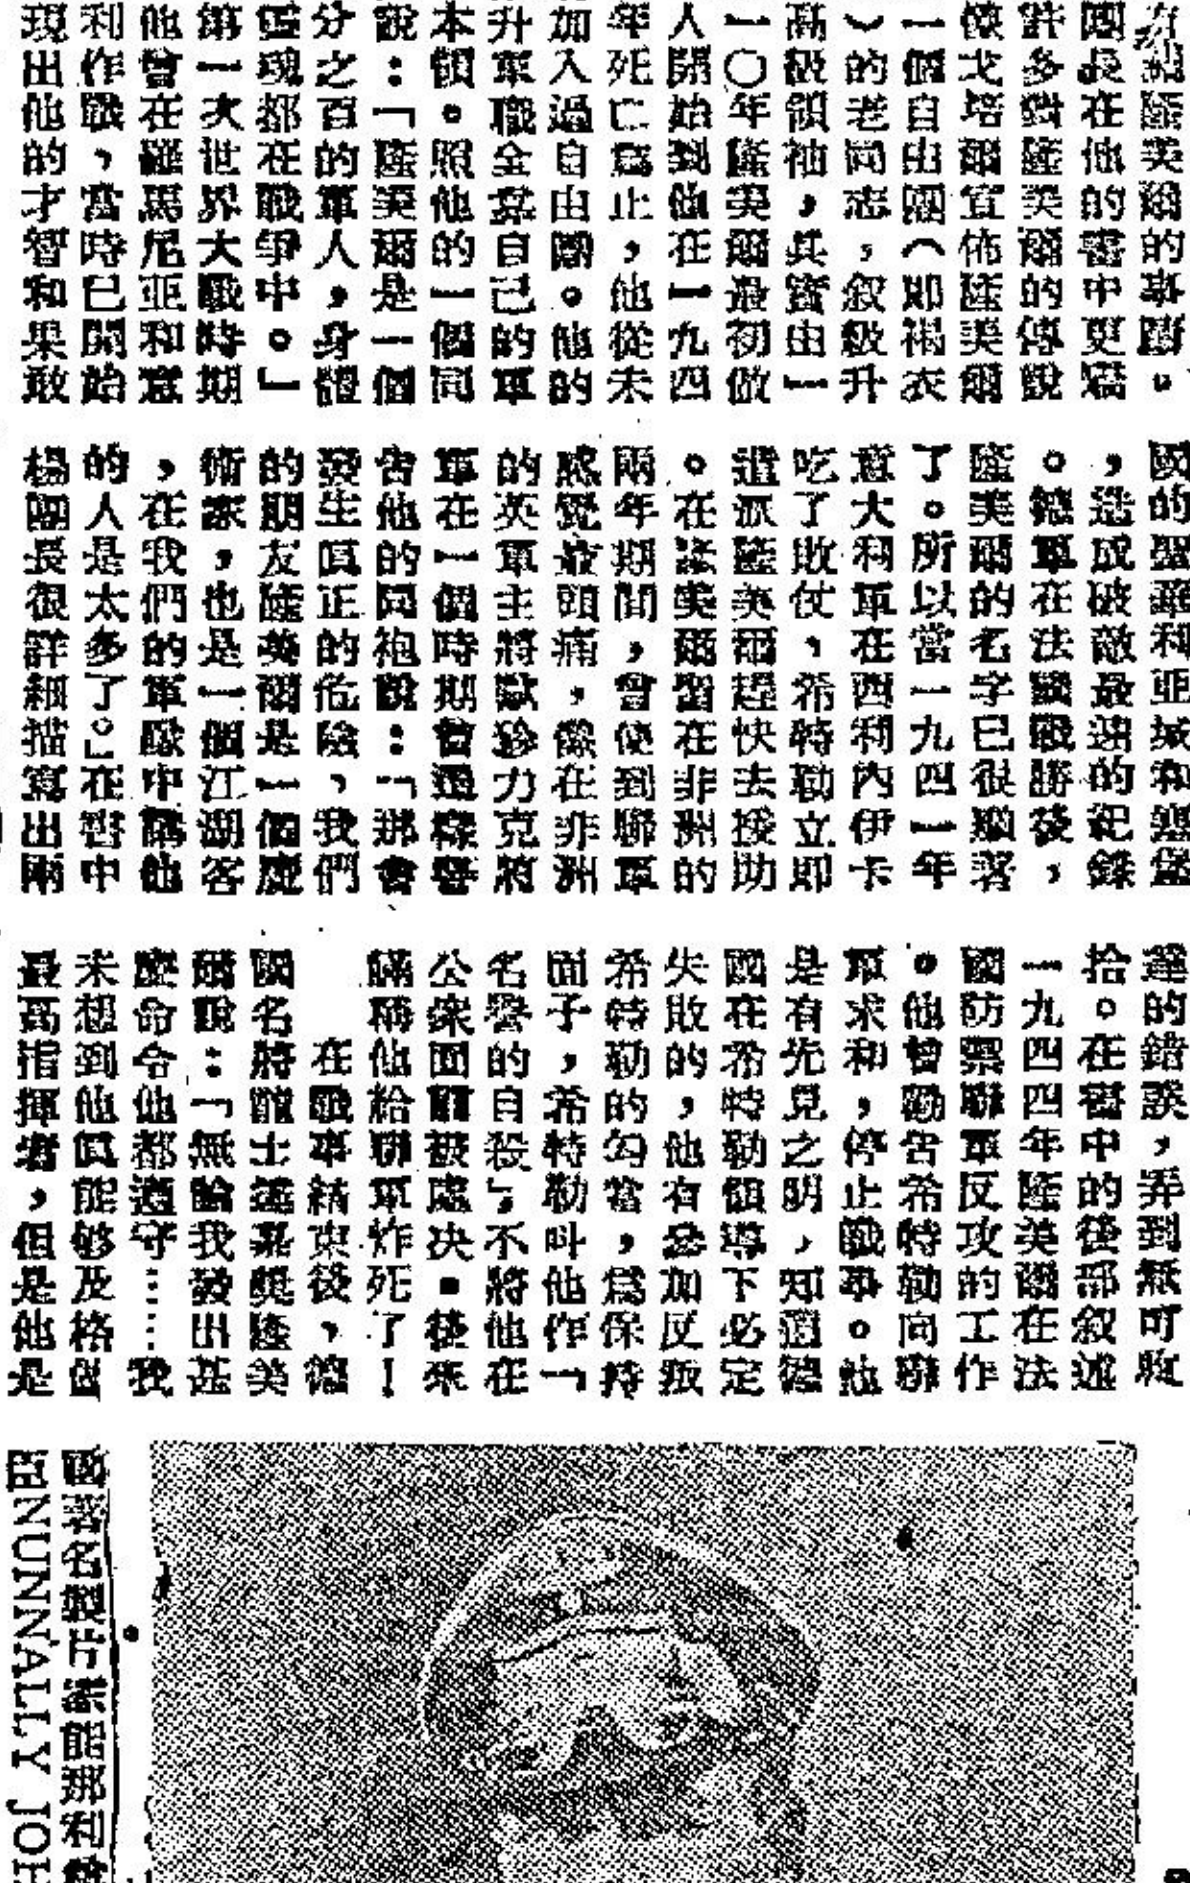 隆美爾的事蹟。
團長在他的書中更寫
許多對隆美爾的傳說
懷戈培爾宣佈隆美爾
一個自由團（即褐衣
）的老同志，叙級升
高級領袖，其實由一
一〇年隆美爾最初做
人開始到他在一九四
年死亡爲止，他從未
加入過自由團。他的
升軍職全靠自己的軍
本領。照他的一個同
說：「隆美爾是一個
分之百的軍人，身體
靈魂都在戰爭中。」
第一次世界大戰時期
他曾在羅馬尼亚和意
利作戰，當時已開始
現出他的才智和果敢
國的聖華利亚城和
，造成破敵最速的紀錄
。德軍在法國戰勝後，
隆美爾的名字已很顯著
了。所以當一九四一年
意大利軍在西利內伊卡
吃了敗仗，希特勒立即
遣派隆美爾趕快去援助
。在隆美爾留在非洲的
兩年期間，曾使到聯軍
感覺最頭痛，像在非洲
的英軍主將歐珍力克將
軍在一個時期曾通樣警
告他的同袍說：「那會
發生眞正的危險，我們
的朋友隆美爾是一個魔
術家，也是一個江湖客
，在我們的軍隊中講他
的人是太多了。」在書中
楊團長很詳細描寫出兩
達的錯誤，弄到無可收
拾。在書中的後部叙述
一九四四年隆美爾在法
國防禦聯軍反攻的工作
。他曾勸告希特勒向聯
軍求和，停止戰事。他
是有先見之明，知道德
國在希特勒領導下必定
失敗的，他有參加反叛
希特勒的勾當，爲保持
面子，希特勒叫他作「
名譽的自殺」，不將他在
公衆面前被處决。後來
瞞稱他給聯軍炸死了！
在戰事結束後，德
國名將龍士達嘉奬隆美
爾說：「無論我發出甚
麽命令他都遵守……我
未想到他眞能够及格做
最高指揮者，但是他是
國著名製片家能那利
NUNNALLY JOH